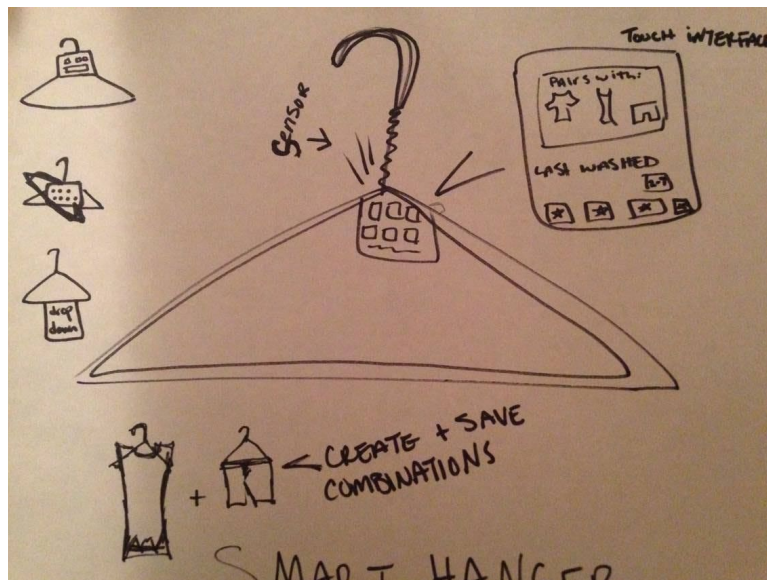 TOUCH INTERFACE
PAIRS with:
LAST WASHED
Sensor
drop
down
CREATE + SAVE
COMBINATIONS
+
SMART HANGER